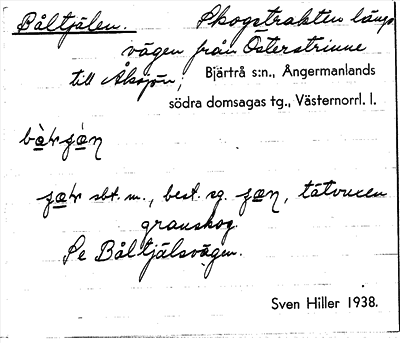 Båltjälen. Skogstrakten längs
vägen från Österstrinne
till Åksjön; Bjärtrå s:n., Ångermanlands
södra domsagas tg., Västernorrl. l.
sbt. m., best. sg. tätvuxen
granskog.
Se Båltjälsvägen.
Sven Hiller 1938.